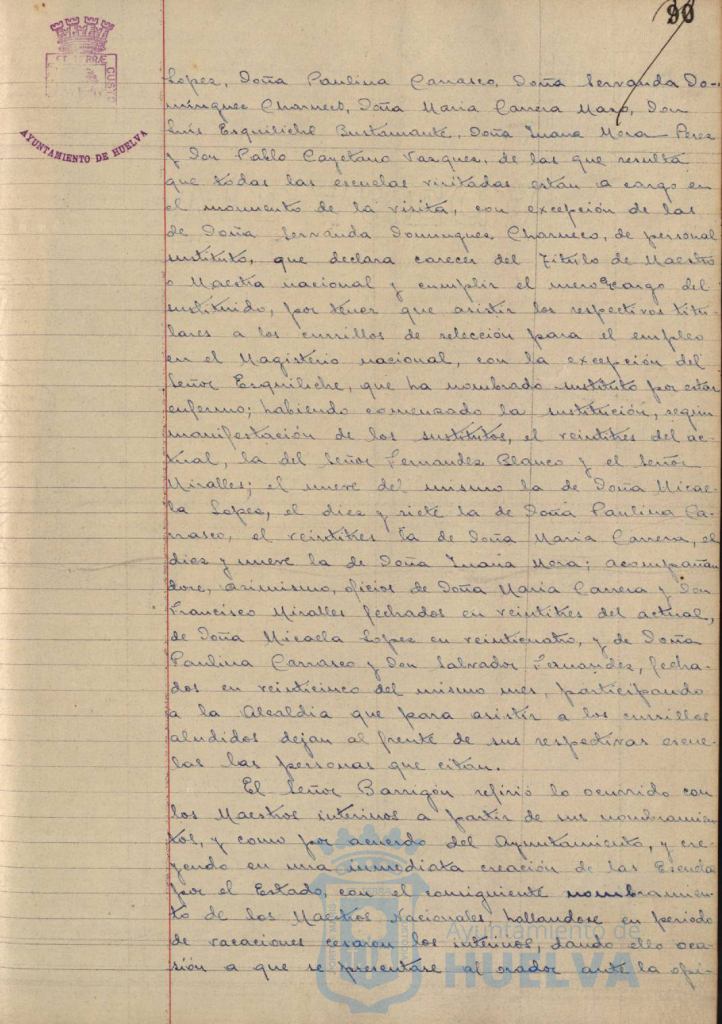 90
AYUNTAMIENTO DE HUELVA
Lopez, Doña Paulina Carrasco, Doña Servanda Do-
minguez Charneco, Doña Maria Carrera Mazo, Don
Luis Esquiliche Bustamante, Doña Juana Mora Perez
y Don Pablo Cayetano Vazquez, de las que resulta
que todas las escuelas visitadas estan a cargo en
el momento de la visita, con excepción de las
de Doña Servanda Dominguez Charneco, de personal
sustituto, que declara carecer del Titulo de Maestro
o Maestra nacional y cumplir el mero cargo del
sustituido, por tener que asistir los respectivos titu-
lares a los cursillos de selección para el empleo
en el Magisterio nacional, con la excepción del
Señor Esquiliche, que ha nombrado sustituto por estar
enfermo; habiendo comenzado la sustitución, segun
manifestación de los sustitutos, el veintitres del ac-
tual, la del Señor Fernandez Blanco y el Señor
Miralles; el nueve del mismo la de Doña Micae-
la Lopez, el diez y siete la de Doña Paulina Ca-
rrasco, el veintitres la de Doña Maria Carrera, el
diez y nueve la de Doña Juana Mora; acompañan-
dose, asimismo, oficios de Doña Maria Carrera y Don
Francisco Miralles fechados en veintitres del actual,
de Doña Micaela Lopez en veinticuatro, y de Doña
Paulina Carrasco y Don Salvador Fernandez, fecha-
dos en veinticinco del mismo mes, participando
a la Alcaldia que para asistir a los cursillos
aludidos dejan al frente de sus respectivas escue-
las las personas que citan.
El Señor Barrigón refirió lo ocurrido con
los Maestros interinos a partir de sus nombramien-
tos, y como por acuerdo del Ayuntamiento, y cre-
yendo en una inmediata creación de las Escuelas
por el Estado, con el consiguiente nombramien-
to de los Maestros Nacionales, hallandose en periodo
de vacaciones cesaron los interinos, dando ello oca-
sión a que se presentase al orador ante la opi-
Ayuntamiento de
HUELVA